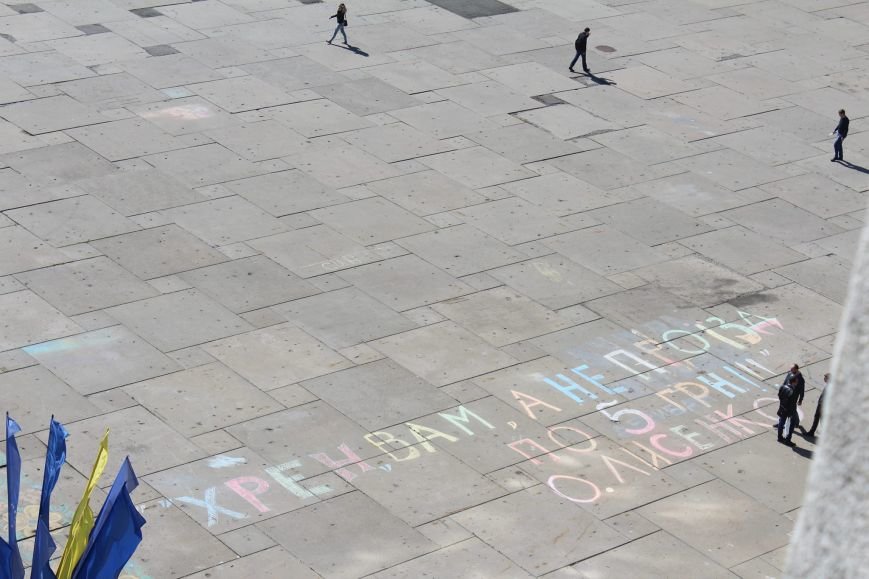 "ХРЕН ВАМ, А НЕ ПРОЇЗД
ПО 5 ГРН!"
О. ЛИСЕНКО